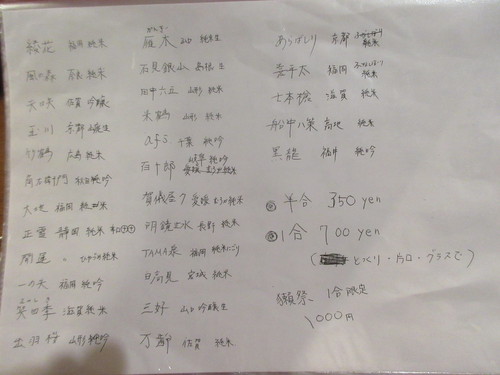 綾花 福岡 純米
風の森 奈良 純米
天の矢 佐賀 吟醸
玉川 京都 純米
竹鶴 広島 純米
角右衛門 秋田 純吟
大地 福岡 純米
正雪 静岡 純米
開運 〃 ひやづめ純米
一の矢 福岡 純吟
笑四季 滋賀 純米
出羽桜 山形 純吟
がんぎ
雁木 山口 純米生
石見銀山 島根 生
田中六五 純米
米鶴 山形 純米
afs 千葉 純吟
百十郎 岐阜 純吟
賀儀屋 愛媛 純米
明鏡止水 長野 純米
TAMA泉 福岡 純米にごり
日高見 宮城 純米
三好 山口 吟醸生
万齢 佐賀 純米
あらばしり 京都 純米
喜平太 福岡 純米
七本槍 滋賀 純米
船中八策 高知 純米
黒龍 福井 純吟
半合 350 yen
1合 700 yen
(とっくり・片口・グラスで)
獺祭 1合限定
1000円